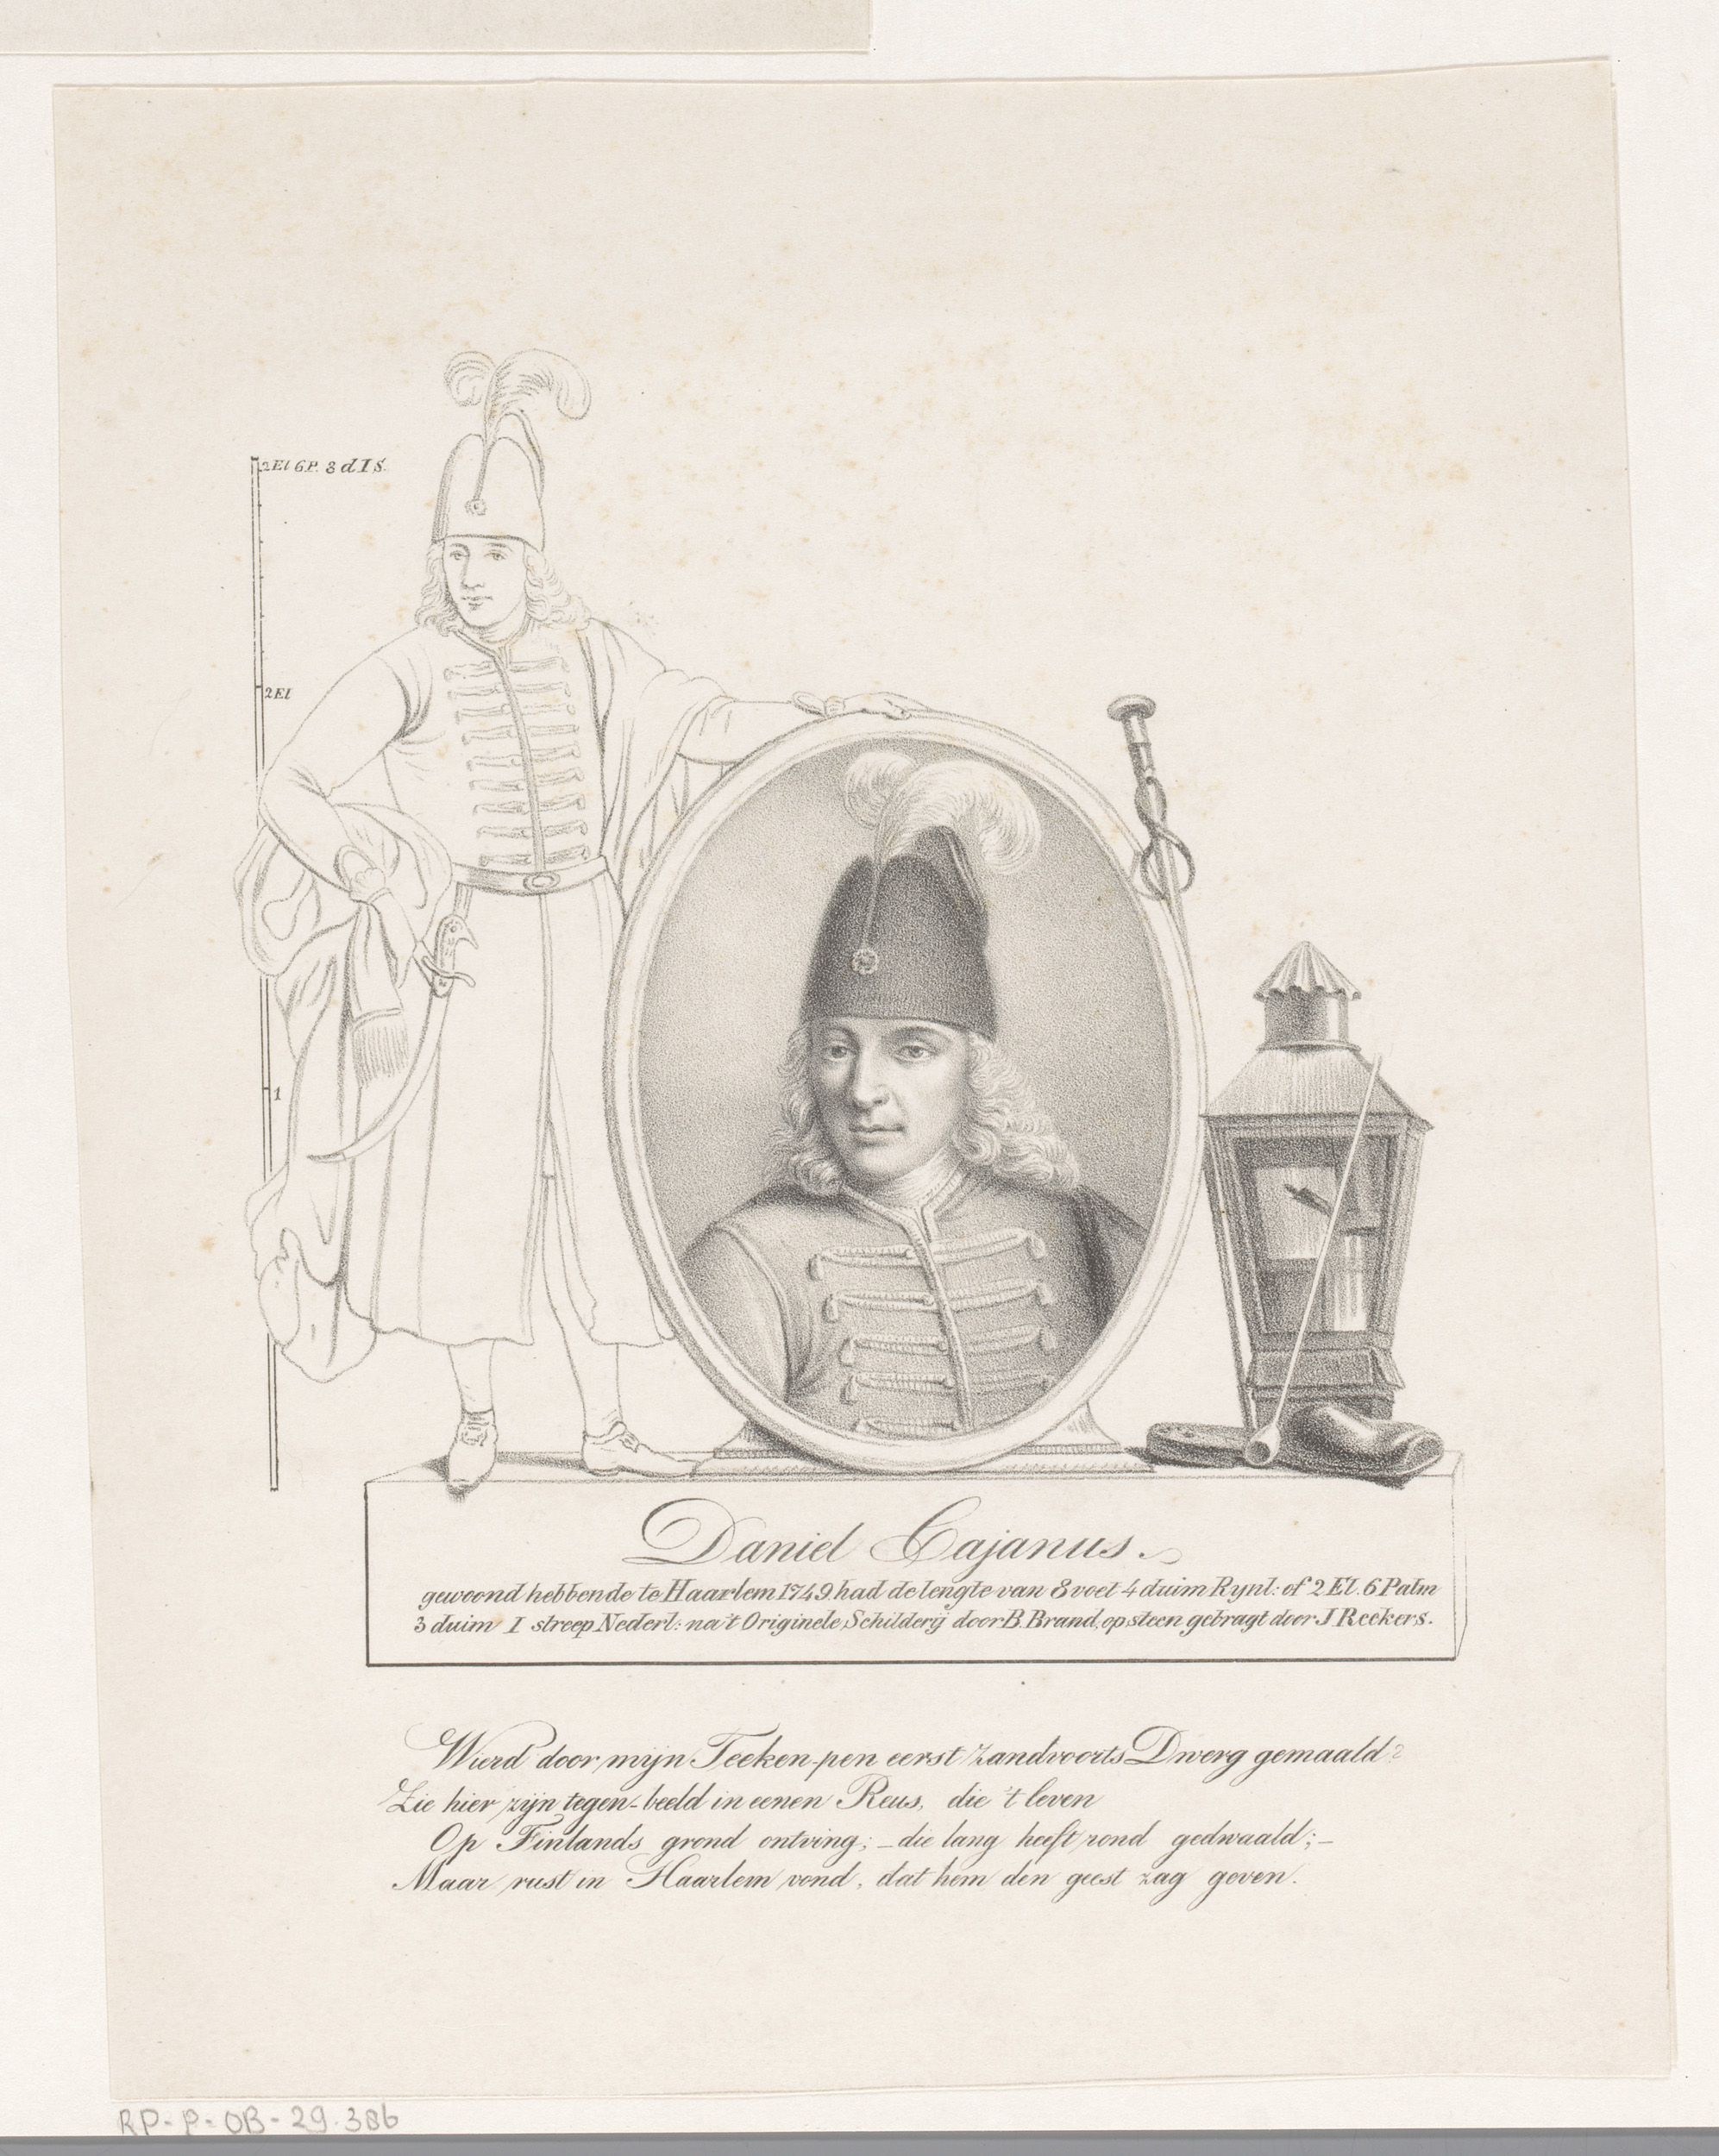 2El 6P. 3 d 1 S.
2El
1
Daniel Cajanus.
gewoond hebbende te Haarlem 1749. had de lengte van 8 voet 4 duim Rynl: of 2 El. 6 Palm
3 duim 1 streep Nederl: na't Origineele Schilderij door B. Brand, op steen gebragt door J Reekers.
Wierd door mijn Teeken-pen eerst Zandvoorts Dwerg gemaald?
Zie hier zijn tegen-beeld in eenen Reus, die 't leven
Op Finlands grond ontving; – die lang heeft rond gedwaald; –
Maar rust in Haarlem vond, dat hem den geest zag geven.
RP-P-OB-29.386